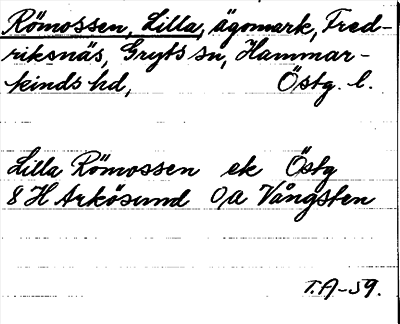 Römossen, Lilla, ägomark, Fred-
riksnäs, Gryts sn, Hammar-
kinds hd, Östg. l.
Lilla Römossen ek Östg
8 H Arkösund 0,a Vångsten
T.A-59.